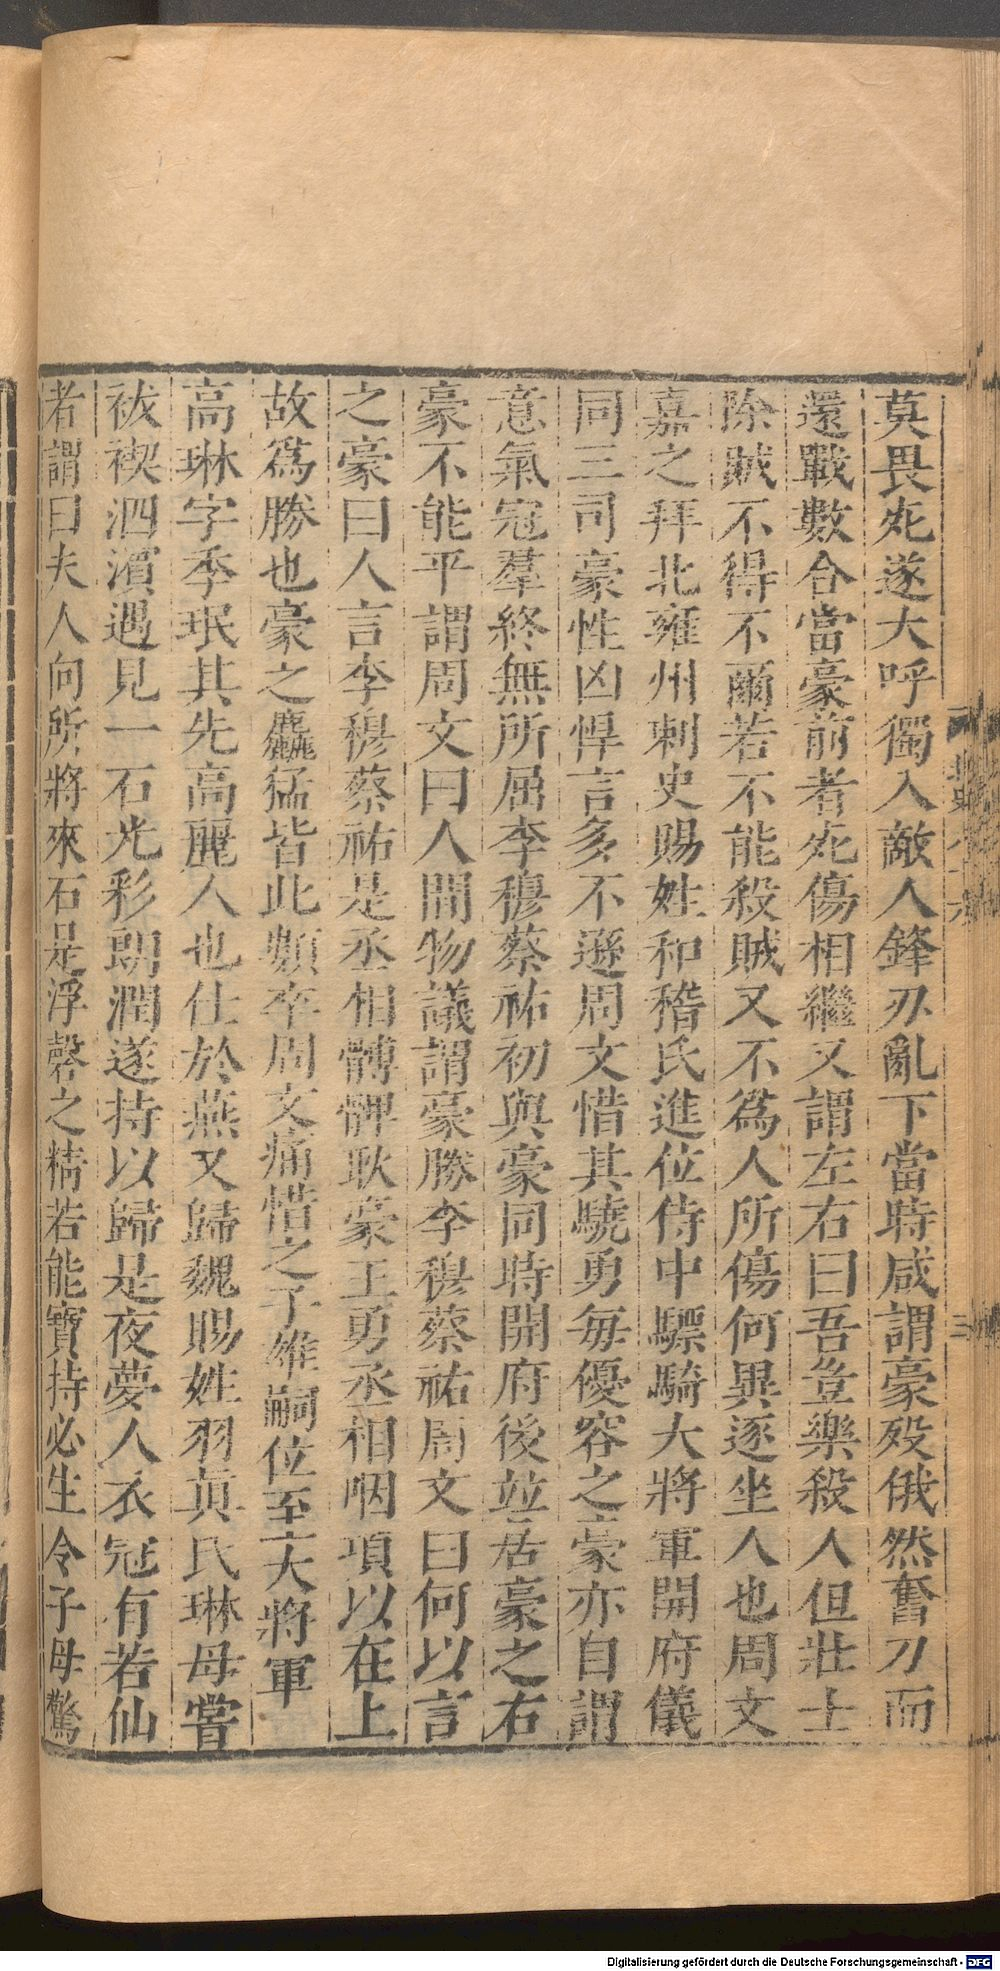 莫畏死遂大呼獨入敵人鋒刃亂下當時咸謂豪歿俄然奮刀而
還戰數合當豪前者死傷相繼又謂左右曰吾豈樂殺人但壯士
除賊不得不爾若不能殺賊又不為人所傷何異逐坐人也周文
嘉之拜北雍州刺史賜姓和稽氏進位侍中驃騎大將軍開府儀
同三司豪性凶悍言多不遜周文惜其驍勇每優容之豪亦自謂
意氣冠羣終無所屈李穆蔡祐初與豪同時開府後並居豪之右
豪不能平謂周文曰人間物議謂豪勝李穆蔡祐周文曰何以言
之豪曰人言李穆蔡祐是丞相髆髀耿豪王勇丞相咽項以在上
故為勝也豪之麤猛皆此類卒周文痛惜之子雄嗣位至大將軍
高琳字季珉其先高麗人也仕於燕又歸魏賜姓羽真氏琳母嘗
祓禊泗濱遇見一石光彩朗潤遂持以歸是夜夢人衣冠有若仙
者謂曰夫人向所將來石是浮磬之精若能寶持必生令子母驚
Digitalisierung gefördert durch die Deutsche Forschungsgemeinschaft - DFG